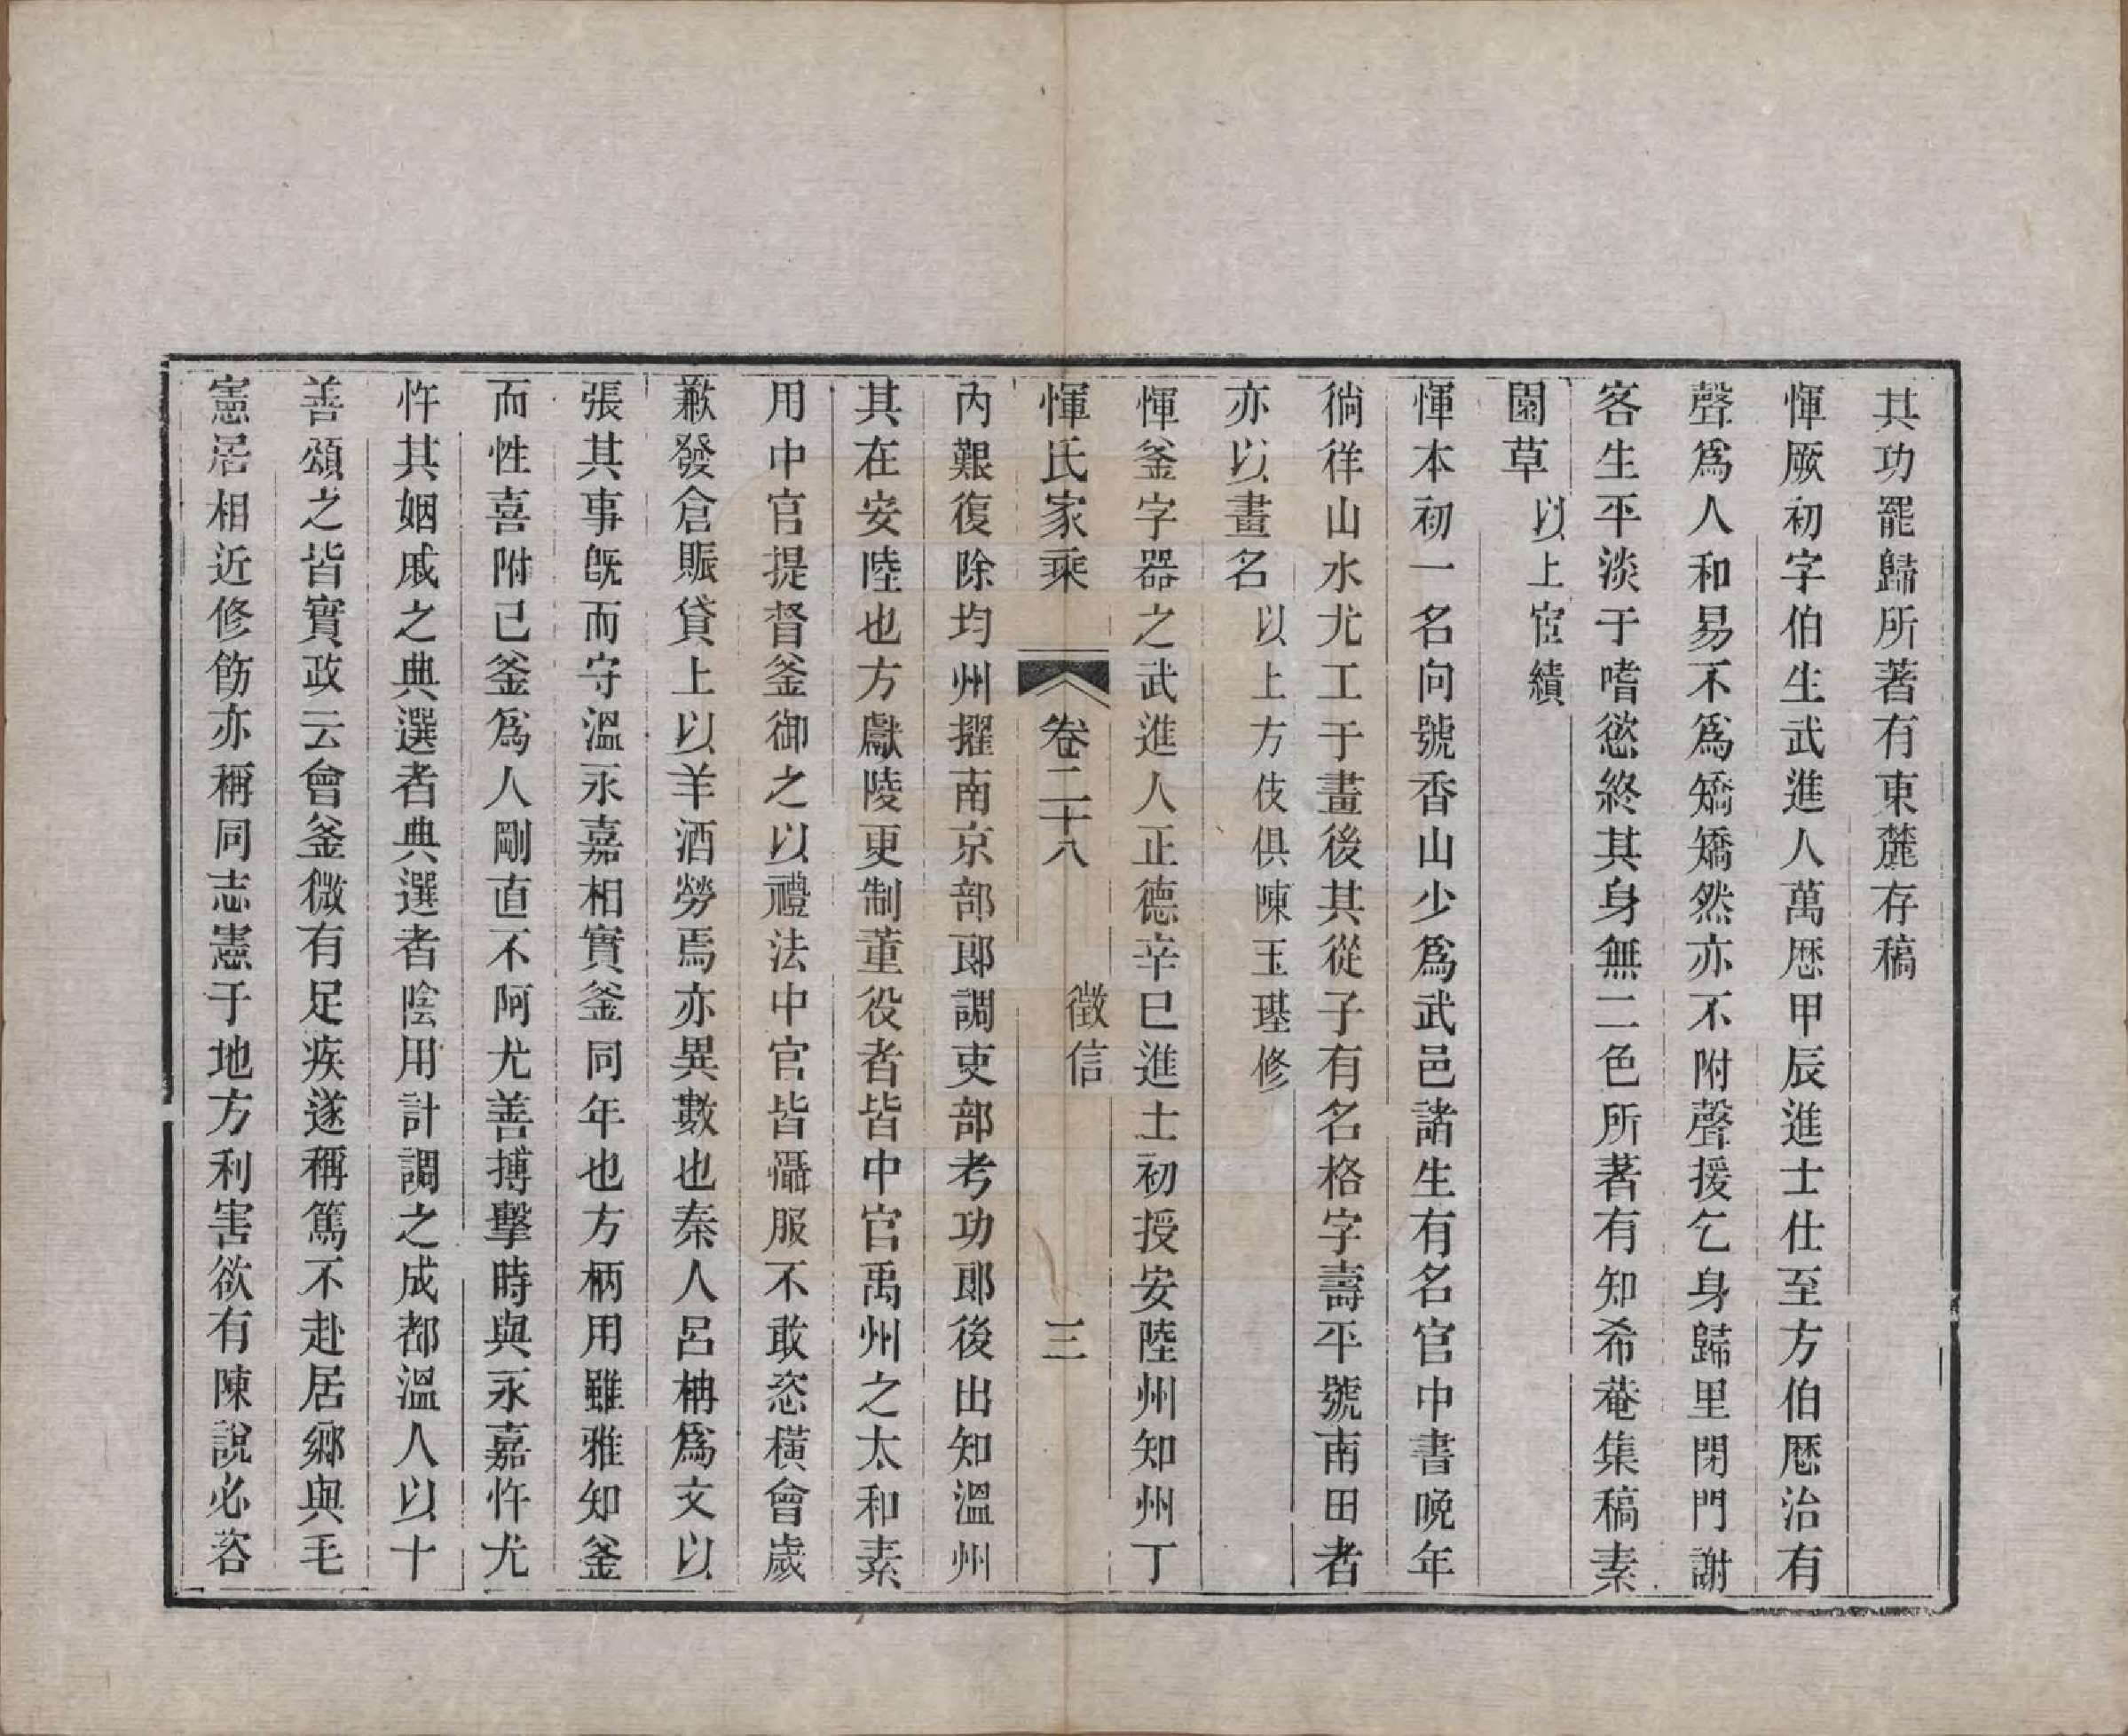 其功罷歸所著有東麓存稿
惲厥初字伯生武進人萬厯甲辰進士仕至方伯厯治有
聲爲人和易不爲矯矯然亦不附聲援乞身歸里閉門謝
客生平淡于嗜慾終其身無二色所著有知希菴集稿素
園草以上宦績
惲本初一名向號香山少爲武邑諸生有名官中書晚年
徜徉山水尤工于畫後其從子有名格字壽平號南田者
亦以畫名以上方伎俱陳玉璂修
惲釜字器之武進人正德辛巳進士初授安陸州知州丁
惲氏家乘 卷二十八 徵信 三
內艱復除均州擢南京部郞調吏部考功郞後出知溫州
其在安陸也方獻陵更制董役者皆中官禹州之太和素
用中官提督釜御之以禮法中官皆懾服不敢恣橫會歲
歉發倉賑貸上以羊酒勞焉亦異數也秦人呂柟爲文以
張其事旣而守溫永嘉相實釜同年也方柄用雖雅知釜
而性喜附己釜爲人剛直不阿尤善搏擊時與永嘉忤尤
忤其姻戚之典選者典選者陰用計調之成都溫人以十
善頌之皆實政云會釜微有足疾遂稱篤不赴居鄉與毛
憲居相近修飭亦稱同志憲于地方利害欲有陳說必咨